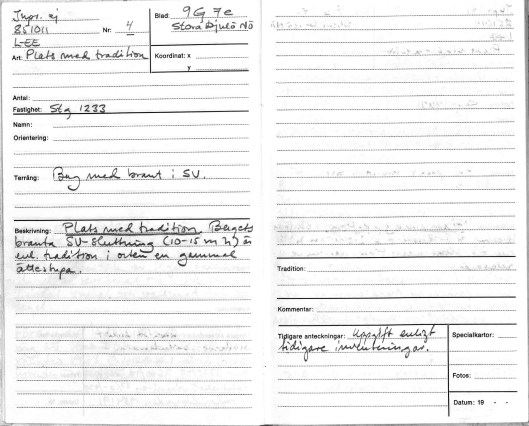 Inpr. ej
851011
LEE
Nr: 4
Art: Plats med tradition
Blad: 9G 7e
Stora Djulö Nö
Koordinat: x
y
Antal:
Fastighet: Stg 1233
Namn:
Orientering:
Terräng: Berg med brant i SV.
Beskrivning: Plats med tradition. Bergets
branta SV-sluttning (10-15 m h) är
enl. tradition i orten en gammal
ättestupa.
Tradition:
Kommentar:
Tidigare anteckningar: Uppgift enligt
tidigare inventeringar.
Specialkartor:
Fotos:
Datum: 19 - -